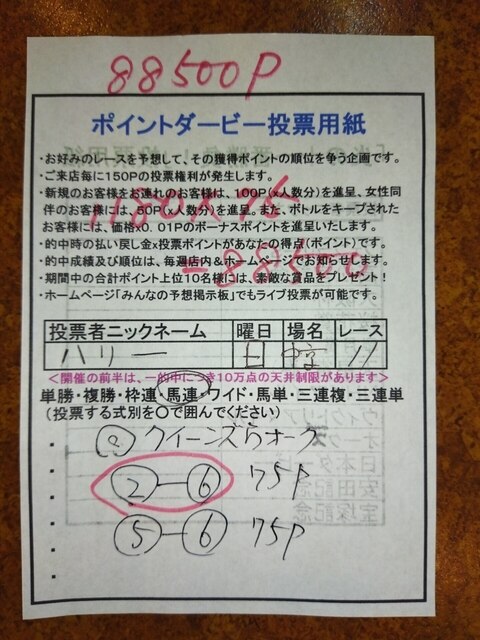 88500P
ポイントダービー投票用紙
・お好みのレースを予想して、その獲得ポイントの順位を争う企画です。
・ご来店毎に150Pの投票権利が発生します。
・新規のお客様をお連れのお客様は、100P(×人数分)を進呈、女性同
伴のお客様には、50P(×人数分)を進呈。また、ボトルをキープされた
お客様には、価格×0.01Pのボーナスポイントを進呈いたします。
・的中時の払い戻し金×投票ポイントがあなたの得点(ポイント)です。
・的中成績及び順位は、毎週店内&ホームページでお知らせします。
・期間中の合計ポイント上位10名様には、素敵な賞品をプレゼント!
・ホームページ「みんなの予想掲示板」でもライブ投票が可能です。
1180×75
=88500
投票者ニックネーム 曜日 場名 レース
ハリー 日 中京 11
<開催の前半は、一的中につき10万点の天井制限があります>
単勝・複勝・枠連・馬連・ワイド・馬単・三連複・三連単
(投票する式別を〇で囲んでください)
クイーンズらオーク
② - ⑥ 75P
⑤ - ⑥ 75P